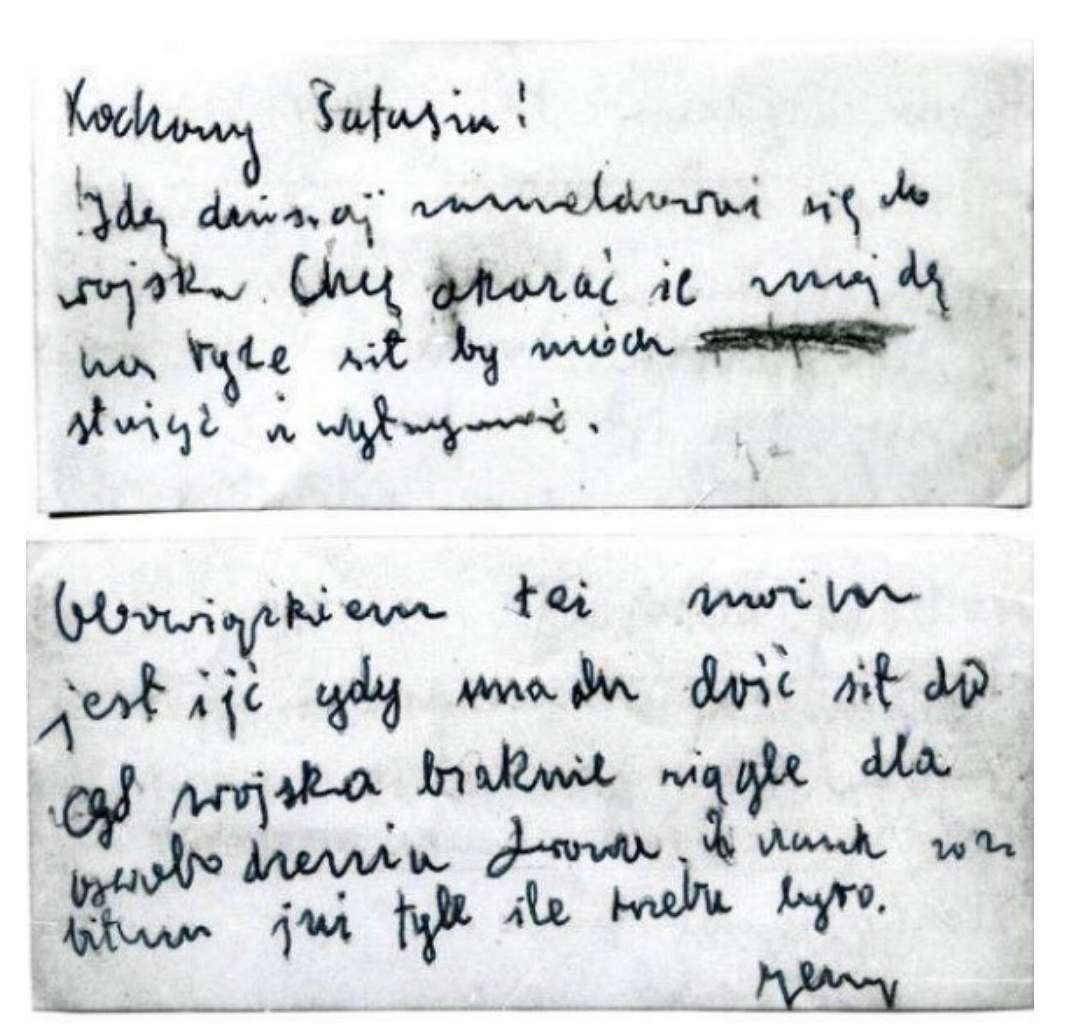 Kochany Tatusiu!
Idę dzisiaj zameldować się do
wojska. Chcę okazać że znajdę
na tyle sił by módz
służyć i wytrzymać.
Obowiązkiem też moim
jest iść gdy mam dość sił
wojska braknie ciągle dla
oswobodzenia Lwowa. Z nauk zro
biłem już tyle ile trzeba było.
Jerzy